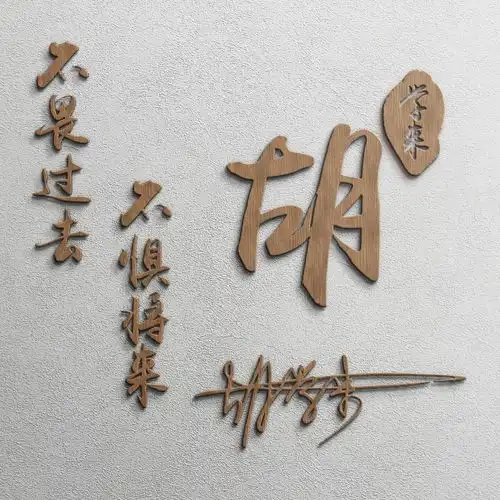 不畏过去
不惧将来
胡
学来